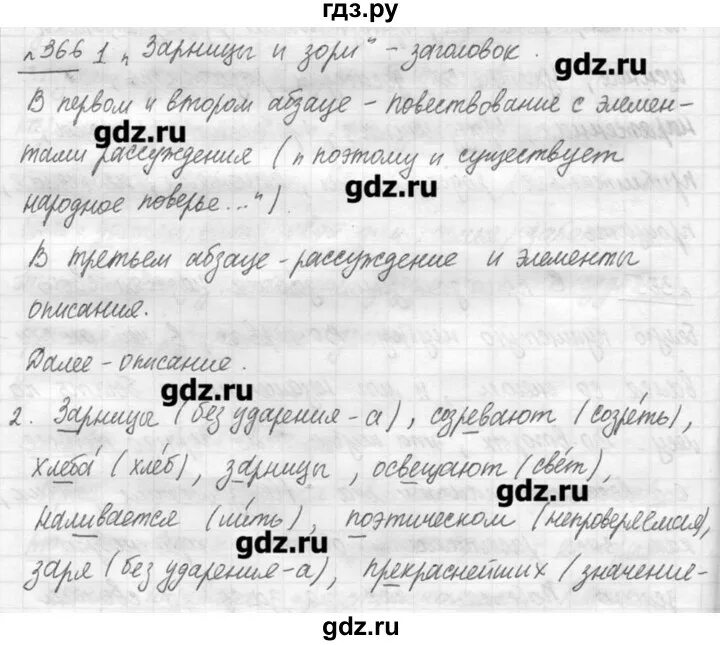 гдз.ру
n 366 1 „Зарницы и зори" - заголовок.
gdz.ru
В первом и втором абзаце - повествование с элемен-
gdz.ru
тами рассуждения („поэтому и существует
gdz.ru
народное поверье..."}.
В третьем абзаце - рассуждение и элементы
описания.
Далее - описание.
gdz.ru
2. Зарницы (без ударения - а), созревают (созре́ть),
хлеба́ (хле́б), зарницы, освещают (све́т),
gdz.ru
наливается (ли́ть), поэтическом (непроверяемая),
gdz.ru
заря (без ударения - а), прекраснейших (значение-
gdz.ru